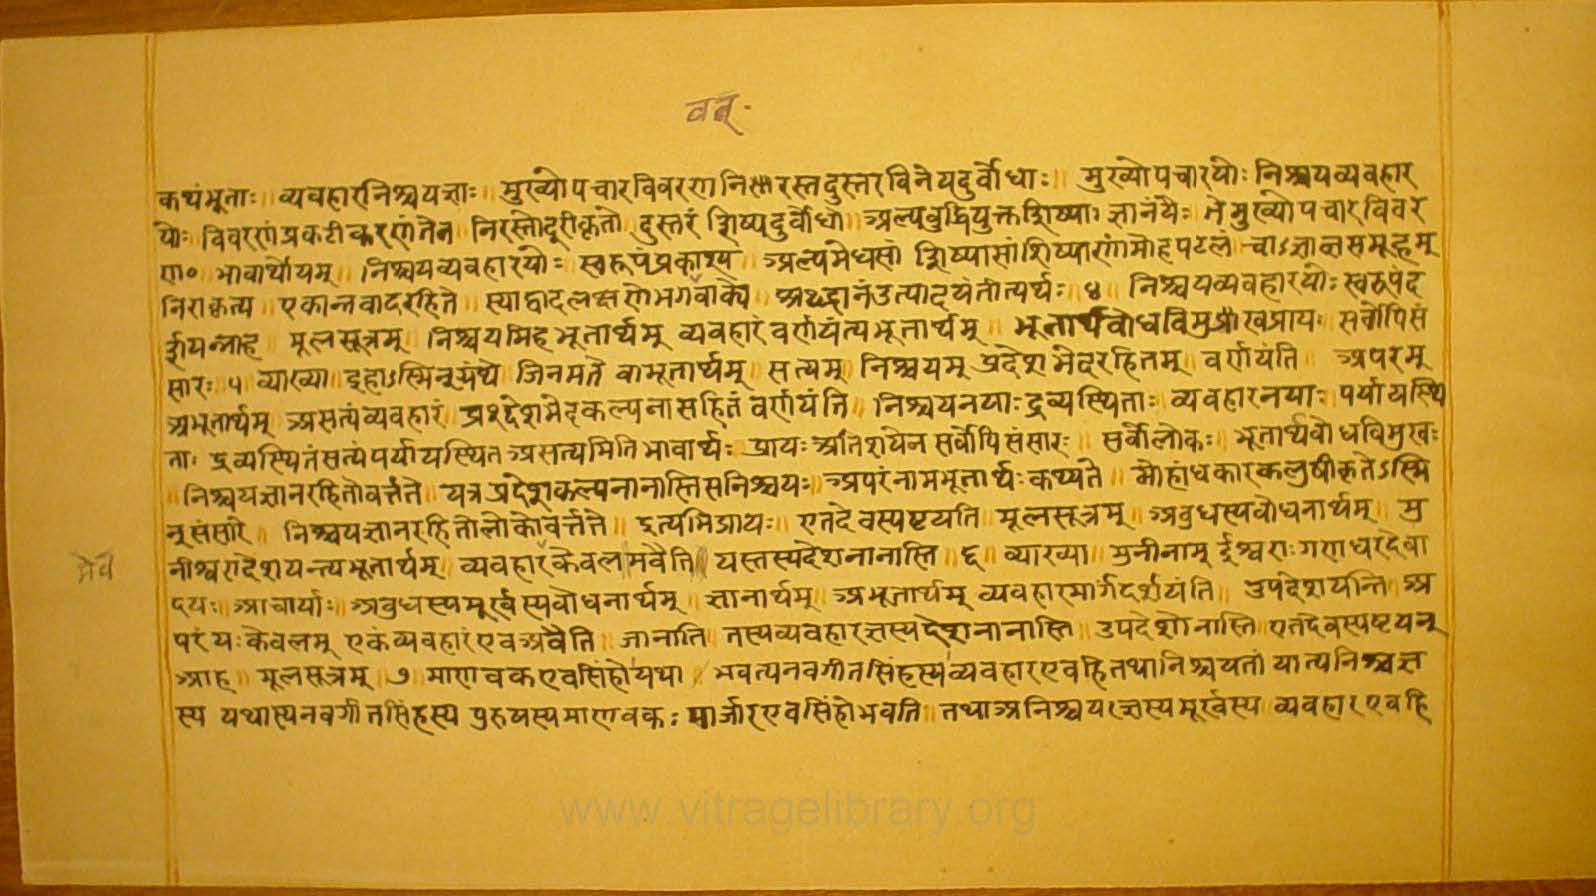 वत्.
कथंभूताः ॥ व्यवहारनिश्चयज्ञाः ॥ मुख्योपचारविवरणनिरस्तदुस्तरविनेयदुर्बोधाः ॥ मुख्योपचारयोः निश्चयव्यवहार
योः विवरणं प्रकटीकरणं तेन निरस्तोदूरीकृतो दुस्तरं शिष्यदुर्वोधो अल्पबुद्धियुक्तशिष्या। ज्ञानंयैः ते मुख्योपचारविवर
ण० भावार्थोयम् ॥ निश्चयव्यवहारयोः स्वरूपंप्रकाश्य अल्पमेधसां शिष्याणांमोहपटलं वाऽज्ञानसमूहम्
निराकृत्य एकान्तवादरहिते स्याद्वादलक्षणेभगवाक्ये श्रद्धानंउत्पादयंतीत्यर्थः ४ ॥ निश्चयव्यवहारयोः स्वरूपंद
र्शयन्नाह मूलसूत्रम् निश्चयमिहभूतार्थम् व्यवहारंवर्णयंत्यभूतार्थम् ॥ भूतार्थबोधविमुखःप्रायः सर्वोपिसं
सारः ५ व्याख्या इहाऽस्मिन्ग्रंथे जिनमते वाभूतार्थम् सत्यम् निश्चयम् प्रदेशभेदरहितम् वर्णयंति ॥ अपरम्
अभूतार्थम् असत्यंव्यवहारं प्रदेशभेदकल्पनासहितं वर्णयंति ॥ निश्चयनयाः द्रव्यस्थिताः व्यवहारनयाः पर्यायस्थि
ता। द्रव्यस्थितंसत्यंपर्यायस्थित असत्यमितिभावार्थः प्रायः अतिशयेन सर्वोपिसंसारः ॥ सर्वोलोकः भूतार्थबोधविमुखः
॥ निश्चयज्ञानरहितोवर्त्तते यत्र प्रदेशकल्पनानास्तिसनिश्चयः ॥ अपरंनामभूतार्थः कथ्यते ॥ मोहांधकारकलुषीकृतेऽस्मि
न्संसारे ॥ निश्चयज्ञानरहितोलोकोवर्त्तते ॥ इत्यभिप्रायः ॥ एतदेवस्पष्टयति मूलसूत्रम् ॥ अबुधस्यबोधनार्थम् ॥ मु
नीश्वरादेशयन्त्यभूतार्थम् ॥ व्यवहारकेवलमवैति ॥ यस्तस्यदेशनानास्ति ॥ ६ ॥ व्याख्या ॥ मुनीनाम् ईश्वराःगणधरदेवा
मेव
दयः आचार्याः अबुधस्यमूर्खस्यबोधनार्थम् ज्ञानार्थम् अभूतार्थम् व्यवहारमार्गदर्शयंति ॥ उपदेशयन्ति अ
परंयः केवलम् एकंव्यवहारंएवअवैति जानाति तस्यव्यवहारज्ञस्यदेशनानास्ति उपदेशोनास्ति एतदेवस्पष्टयन्
आह ॥ मूलसूत्रम् ७ माणवकएवसिंहोयथा ॥ भवत्यनवगीतसिंहस्य व्यवहारएवहितथानिश्चयतां यात्यनिश्चयज्ञ
स्य यथास्यनवगीतसिंहस्य पुरुषस्यमाणवकः मार्जारएवसिंहोभवति तथाअनिश्चयज्ञस्यमूर्खस्य व्यवहारएवहि
www.vitragelibrary.org